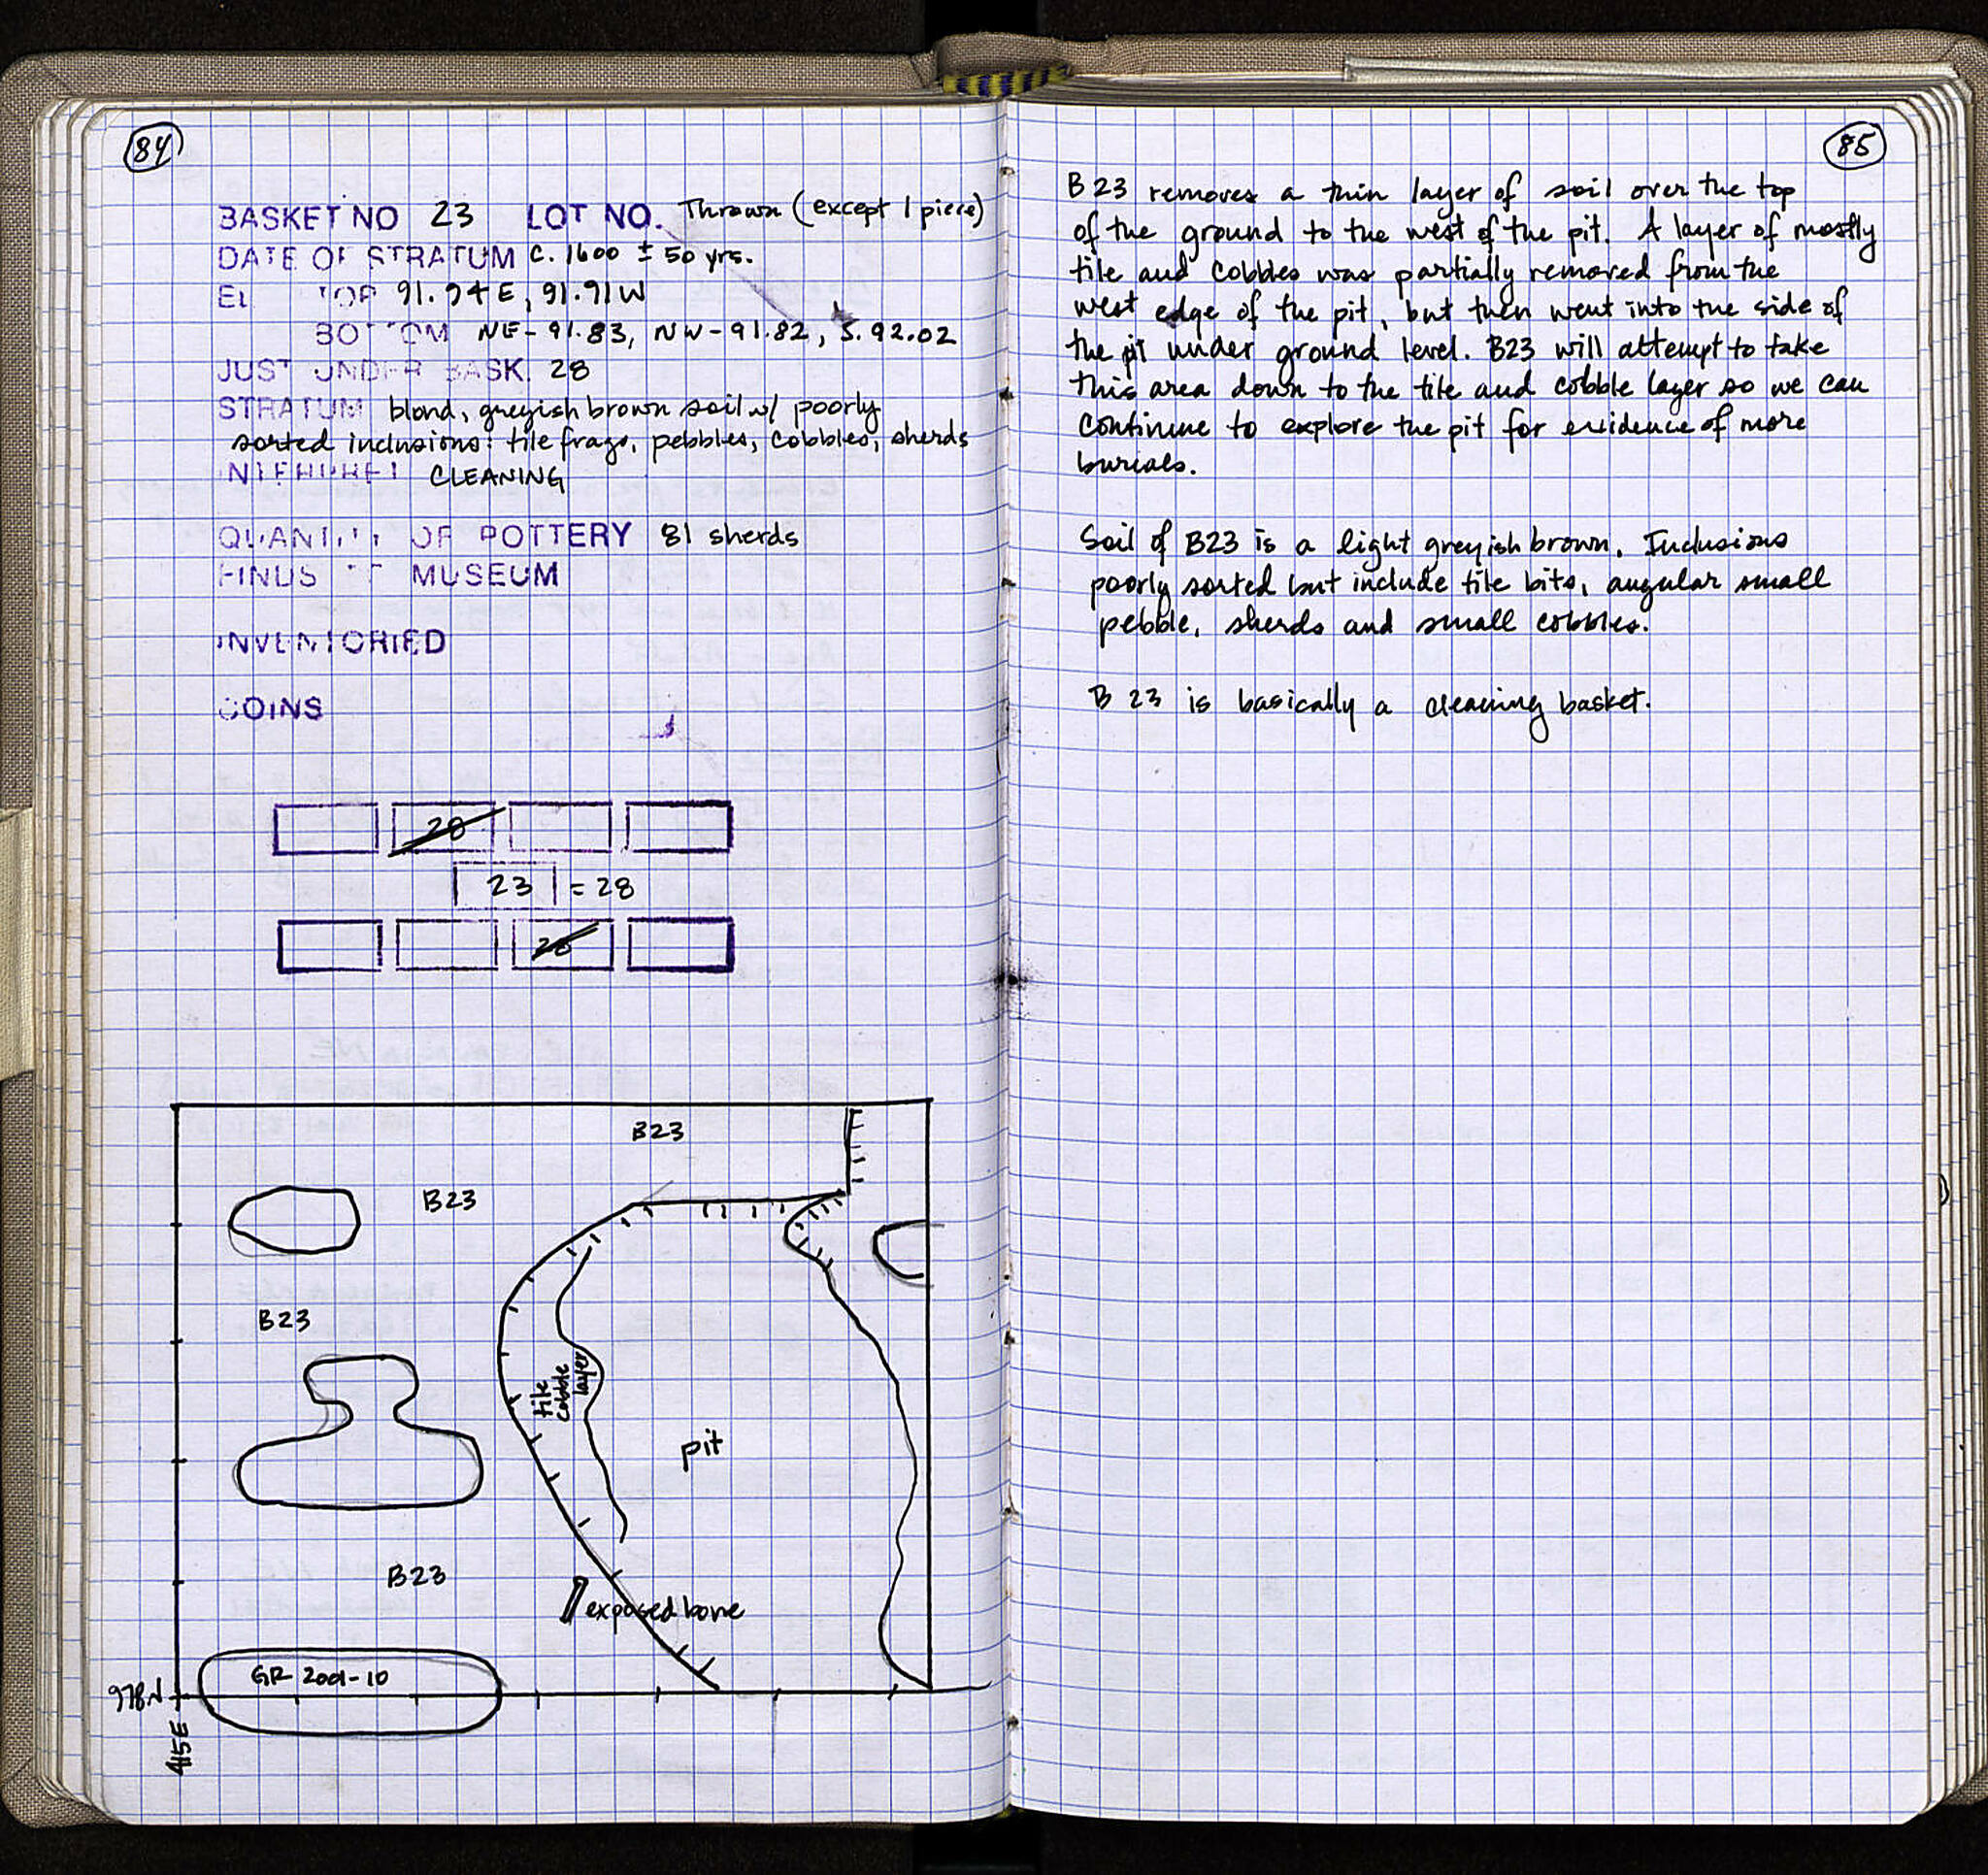 84
BASKET NO 23 LOT NO. Thrown (except 1 piece)
DATE OF STRATUM c. 1600 ± 50 yrs.
EL TOP 91.94 E, 91.91 W
BOTTOM NE - 91.83, NW - 91.82, S. 92.02
JUST UNDER BASK. 28
STRATUM blond, greyish brown soil w/ poorly
sorted inclusions: tile frags, pebbles, cobbles, sherds
INTERPRET CLEANING
QUANTITY OF POTTERY 81 sherds
FINDS MUSEUM
INVENTORIED
COINS
28
23 = 28
28
B23
B23
B23
tile
cobble
layer
pit
B23
exposed bone
GR 2001-10
978N
415E
85
B23 removes a thin layer of soil over the top
of the ground to the west of the pit. A layer of mostly
tile and cobbles was partially removed from the
west edge of the pit, but then went into the side of
the pit under ground level. B23 will attempt to take
this area down to the tile and cobble layer so we can
continue to explore the pit for evidence of more
burials.
Soil of B23 is a light greyish brown. Inclusions
poorly sorted but include tile bits, angular small
pebble, sherds and small cobbles.
B 23 is basically a cleaning basket.